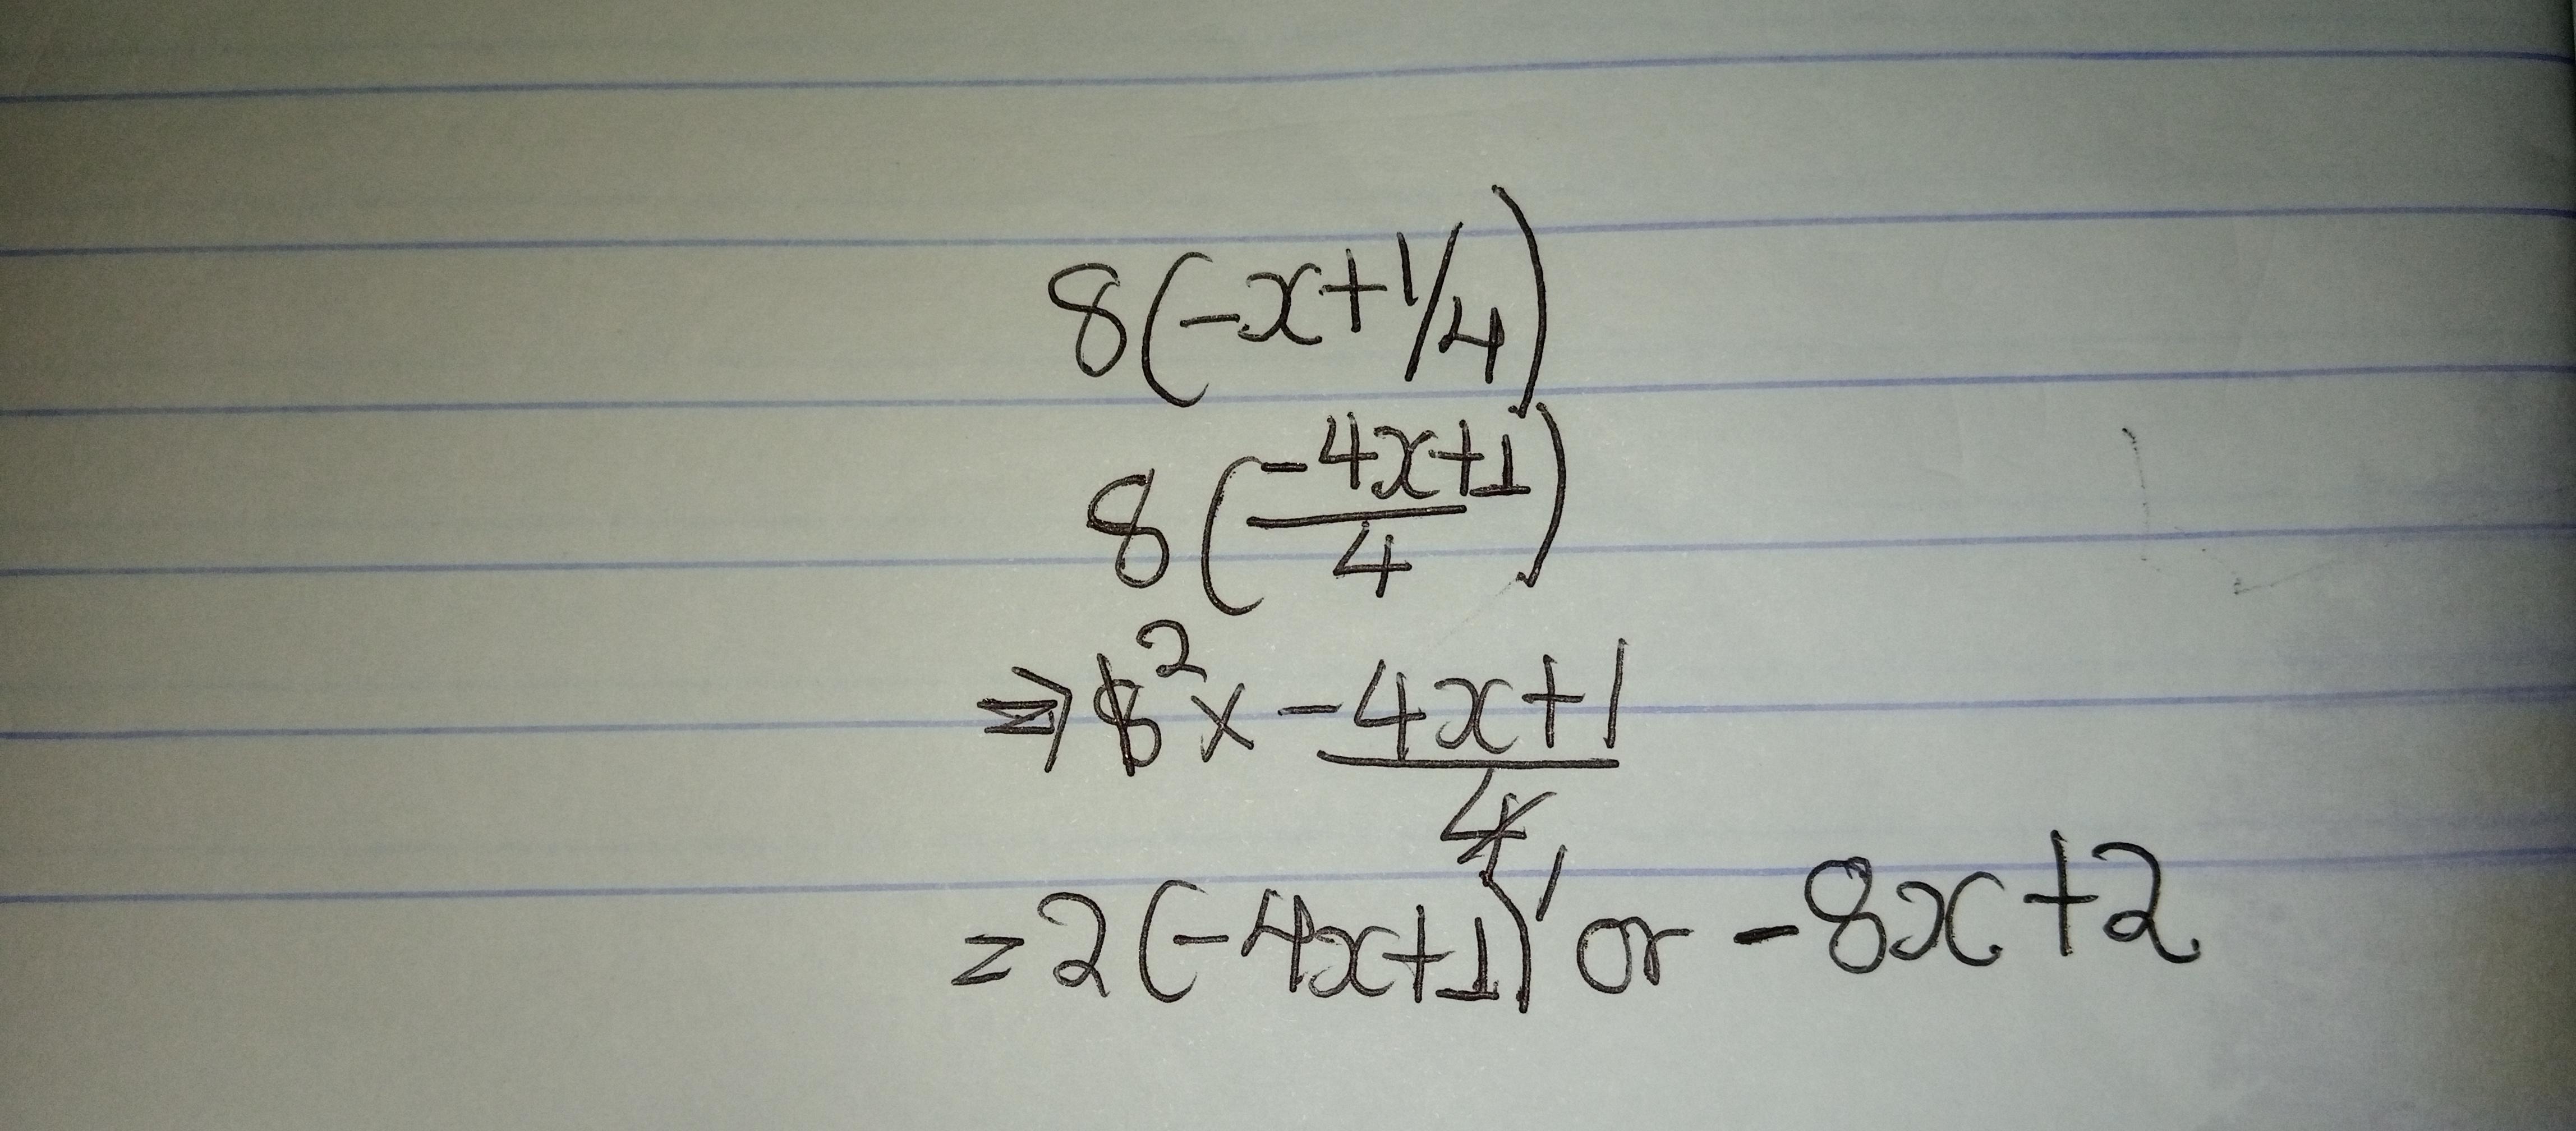 8(-x+1/4)
8(-4x+1/4)
⇒ 8² x -4x+1/4¹
= 2(-4x+1) or -8x+2